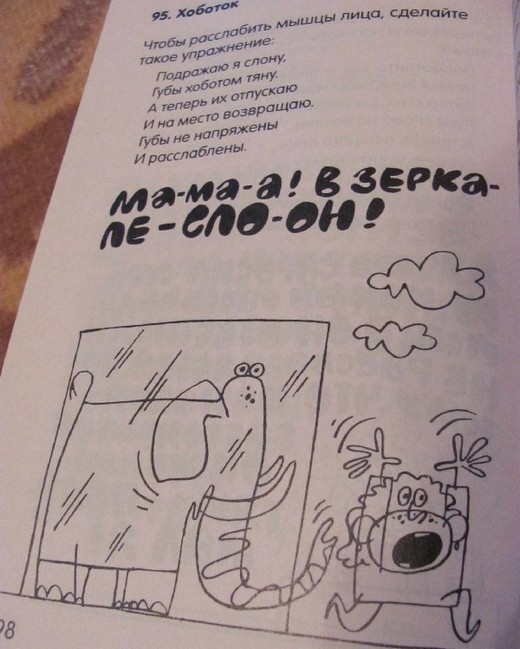 95. Хоботок
Чтобы расслабить мышцы лица, сделайте
такое упражнение:
Подражаю я слону,
Губы хоботом тяну.
А теперь их отпускаю
И на место возвращаю.
Губы не напряжены
И расслаблены.
МА-МА-А! В ЗЕРКА-
ЛЕ-СЛО-ОН!
98